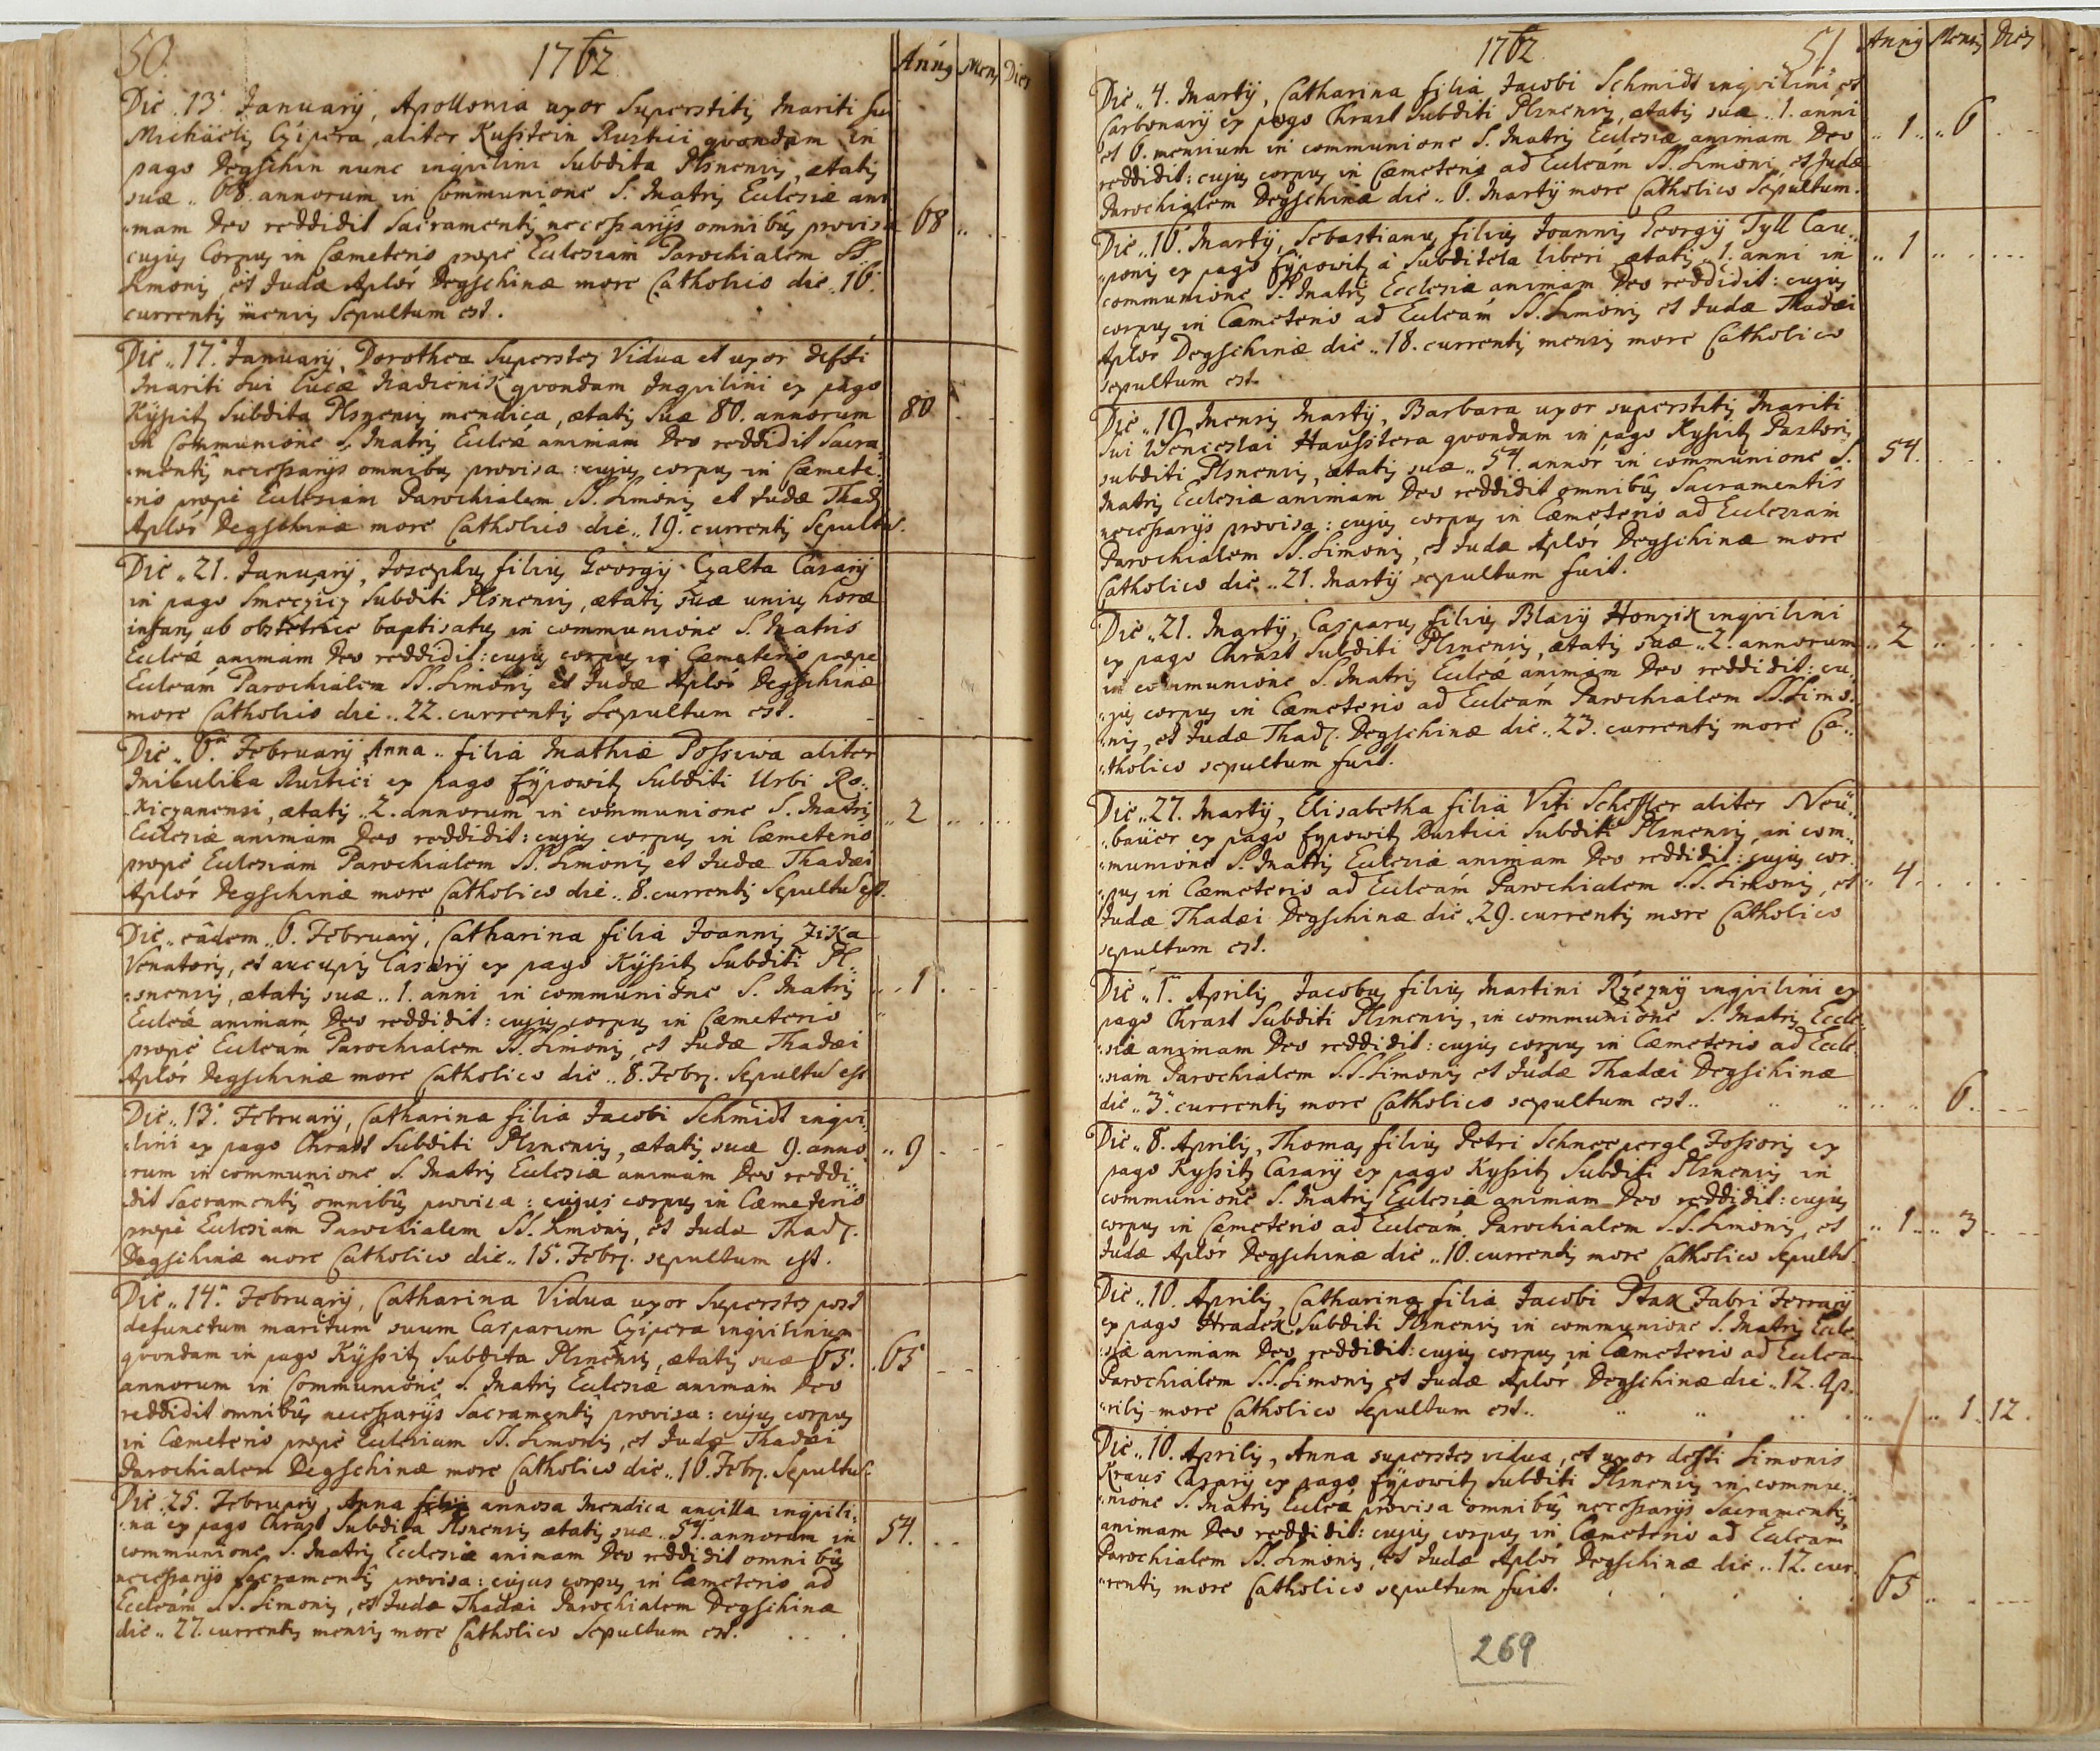 50.
1762
Anny Mens Dies
Die 13. January, Apollonia uxor Superstitis Mariti sui
Michäelis Czipera, aliter Kusstein Rustici quondam in
pago Degschin nunc inquilini Subdita Plsnensis, ætatis
suæ .. 68. annorum in Communione S. Matris Ecclesiæ ani
:mam Deo reddidit Sacramentis necessarijs omnibus provisa
cujus Corpus in Cæmeterio prope Ecclesiam Parochialem SS.
Simonis et Judæ Aplor Degschinæ more Catholico die .. 16.
currentis mensis Sepultum est.
68
Die .. 17. January, Dorothea Superstes Vidua et uxor deffti
Mariti sui Lucæ quondam Inquilini ex pago
Kyssitz Subdita Plsnensis mendica, ætatis Suæ 80. annorum
in Communione S. Matris Eccleæ animam Deo reddidit Sacra
:mentis necessarijs omnibus provisa : cujus corpus in Cæmete:
:rio prope Ecclesiam Parochialem SS. Simonis et Judæ Thad
Aplor Degschinæ more Catholico die .. 19. currentis Sepultus.
80
Die .. 21. January, Josephus filius Georgij Czalta Casarij
in pago Smeczicz Subditi Plsnensis, ætatis suæ unius horæ
infans ab obstetrice baptisatus in communione S. Matris
Eccleæ animam Deo reddidit : cujus corpus in Cæmeterio prope
Eccleam Parochialem SS. Simonis et Judæ Aplor Degschinæ
more Catholico die .. 22. currentis Sepultum est.
Die .. 6. February Anna .. filia Mathiæ Possiwa aliter
Mikulika Rustici ex pago Eÿpowitz Subditi Urbi Ro:
:kiczanensi, ætatis .. 2. annorum in communione S. Matris
Ecclesiæ animam Deo reddidit : cujus corpus in Cæmeterio
prope Ecclesiam Parochialem SS. Simonis et Judæ Thadæi
Aplor Degschinæ more Catholico die .. 8. currentis Sepultus est.
.. 2
Die .. eâdem .. 6. February, Catharina filia Joannis Zika
Venatoris, et aucupis Casarij ex pago Kÿssitz Subditi Pl:
:snensis, ætatis suæ .. 1. anni in communione S. Matris
Eccleæ animam Deo reddidit : cujus corpus in Cæmeterio
prope Eccleam Parochialem SS. Simonis, et Judæ Thadæi
Aplor Degschinæ more Catholico die .. 8. Febr. Sepultus est
.. 1.
Die .. 13. February, Catharina filia Jacobi Schmidt inqui
:lini ex pago Chrast Subditi Plsnensis, ætatis suæ 9. anno
:rum in communione S. Matris Ecclesiæ animam Deo reddi:
:dit Sacramentis omnibus provisa : cujus corpus in Cæmeterio
prope Ecclesiam Parochialem SS. Simonis, et Judæ Thad.
Degschinæ more Catholico die .. 15. Febr. sepultum est.
.. 9
Die .. 14. February, Catharina Vidua uxor Superstes post
defunctum maritum suum Casparum Czipera inquilinum
quondam in pago Kÿssitz Subdita Plsnensis, ætatis suæ 65.
annorum in Communione S. Matris Ecclesiæ animam Deo
reddidit omnibus necessarijs Sacramentis provisa : cujus corpus
in Cæmeterio prope Ecclesiam SS. Simonis, et Judæ Thadæi
Parochialem Degschinæ more Catholico die .. 16. Febr. Sepultus
65
Die 25. February, Anna annosa Mendica ancilla inquili:
:na ex pago Chrast Subdita Plsnensis ætatis suæ .. 54. annorum in
communione S. Matris Ecclesiæ animam Deo reddidit omnibus
necessarijs Sacramentis provisa : cujus corpus in Cæmeterio ad
Eccleam SS. Simonis, et Judæ Thadæi Parochialem Degschinæ
die .. 27. currentis mensis more Catholico Sepultum est.
54.
1762
51
Anny Mens Dies
Die .. 4. Martÿ, Catharina filia Jacobi Schmidt inquilini, et
Carbonarij ex pago Chrast Subditi Plsnensis, ætatis suæ .. 1. anni
et 6. mensium in communione S. Matris Ecclesiæ animam Deo
reddidit : cujus corpus in Cæmeterio ad Eccleam SS. Simonis, et Judæ
Parochialem Degschinæ die .. 6. Martÿ more Catholico Sepultum.
.. 1 .. 6
Die .. 16. Martÿ, Sebastianus filius Joannis Georgij Tyll Cau:
:ponis ex pago Eÿpowitz à Subditela liberi ætatis .. 1. anni in
communione S. Matris Ecclesiæ animam Deo reddidit : cujus
corpus in Cæmeterio ad Eccleam SS. Simonis et Judæ Thadæi
Aplor Degschinæ die .. 18. currentis mensis more Catholico
sepultum est.
.. 1
Die .. 19 Mensis Martÿ, Barbara uxor superstitis Mariti
sui Wenceslai Hausstera quondam in pago Kyssitz Pastoris
subditi Plsnensis, ætatis suæ .. 54. annor in communione S.
Matris Ecclesiæ animam Deo reddidit omnibus Sacramentis
necessarijs provisa : cujus corpus in Cæmeterio ad Ecclesiam
Parochialem SS. Simonis, et Judæ Aplor Degschinæ more
Catholico die .. 21. Martÿ sepultum fuit.
54.
Die .. 21. Martÿ, Casparus filius Blasij Honzik inquilini
ex pago Chrast Subditi Plsnensis, ætatis suæ .. 2. annorum
in communione S. Matris Eccleæ animam Deo reddidit : cu:
:jus corpus in Cæmeterio ad Eccleam Parochialem SS. Simo:
:nis, et Judæ Thad. Degschinæ die .. 23. currentis more Ca:
:tholico sepultum fuit.
.. 2
Die .. 27. Martÿ, Elisabetha filia Viti Scheffler aliter Neü:
:bauer ex pago Eypowitz Rustici Subditi Plsnensis, in com:
:munione S. Matris Ecclesiæ animam Deo reddidit : cujus cor:
:pus in Cæmeterio ad Eccleam Parochialem S.S. Simonis, et
Judæ Thadæi Degschinæ die .. 29. currentis more Catholico
sepultum est.
.. 4.
Die .. 1. Aprilis Jacobus filius Martini Rzezny inquilini ex
pago Chrast Subditi Plsnensis, in communione S. Matris Eccle
:siæ animam Deo reddidit : cujus corpus in Cæmeterio ad Eccle:
:siam Parochialem S.S. Simonis et Judæ Thadæi Degschinæ
die .. 3. currentis more Catholico sepultum est..
6.
Die .. 8. Aprilis, Thomas filius Petri Schneepergl, Fossoris ex
pago Kyssitz Casarij ex pago Kyssitz Subditi Plsnensis in
communione S. Matris Ecclesiæ animam Deo reddidit : cujus
corpus in Cæmeterio ad Eccleam Parochialem S.S. Simonis, et
Judæ Aplor Degschinæ die .. 10. currentis more Catholico Sepultus.
.. 1 .. 3
Die .. 10. Aprilis, Catharina filia Jacobi Ptak Fabri Ferrarij
ex pago Hradek Subditi Plsnensis in communione S. Matris Eccle:
:siæ animam Deo reddidit : cujus corpus in Cæmeterio ad Eccleam
Parochialem S.S. Simonis et Judæ Aplor Degschinæ die .. 12. Ap:
:rilis more Catholico Sepultum est..
1 .. 12.
Die .. 10. Aprilis, Anna superstes vidua, et uxor deffti Simonis
Kraus Casarij ex pago Eÿpowitz Subditi Plsnensis in commu:
:nione S. Matris Eccleæ provisa omnibus necessarijs Sacramentis
animam Deo reddidit : cujus corpus in Cæmeterio ad Eccleam
Parochialem SS. Simonis, et Judæ Aplor Degschinæ die .. 12. cur:
:rentis more Catholico sepultum fuit.
65
269